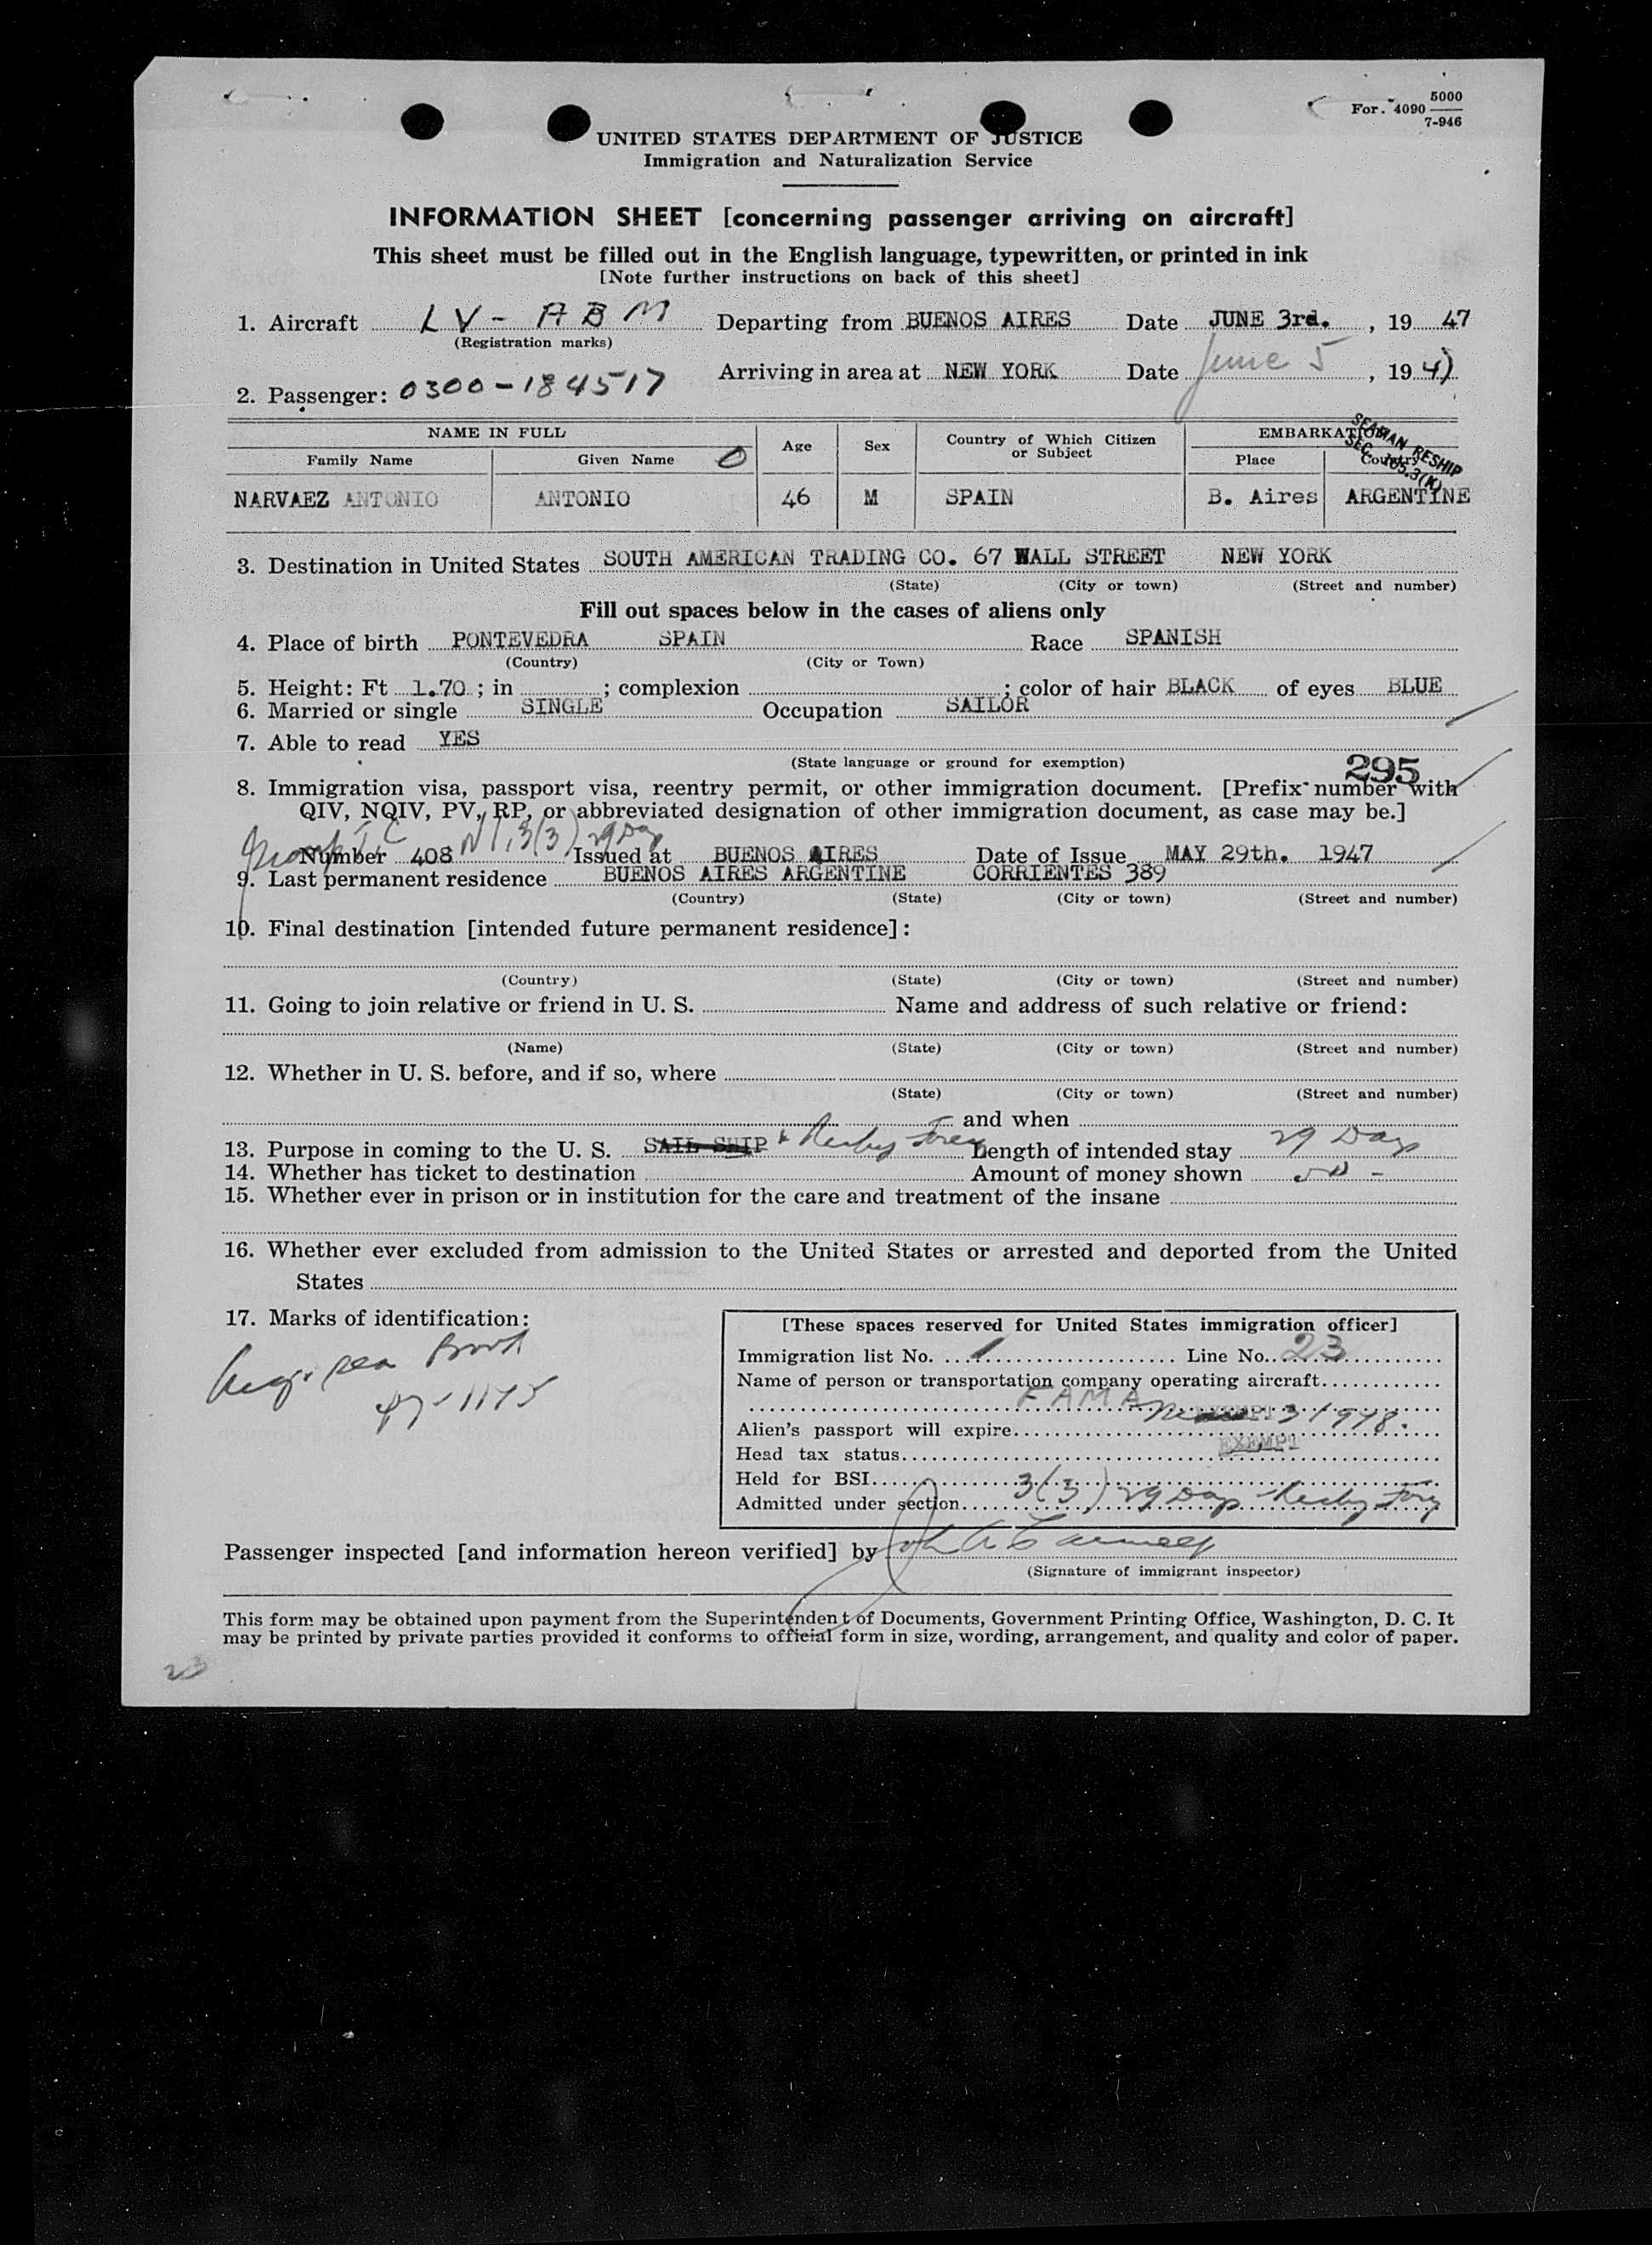 For. 4090 5000
7-946
UNITED STATES DEPARTMENT OF JUSTICE
Immigration and Naturalization Service
INFORMATION SHEET [concerning passenger arriving on aircraft]
This sheet must be filled out in the English language, typewritten, or printed in ink
[Note further instructions on back of this sheet]
1. Aircraft LV-ABM Departing from BUENOS AIRES Date JUNE 3rd. , 19 47
(Registration marks)
Arriving in area at NEW YORK Date June 5 , 19 47
2. Passenger: 0300-184517
SEAMAN RESHIP
SEC. 105.3(K)
NAME IN FULL Age Sex Country of Which Citizen or Subject EMBARKATION
Family Name Given Name Place Country
NARVAEZ ANTONIO ANTONIO 46 M SPAIN B. Aires ARGENTINE
3. Destination in United States SOUTH AMERICAN TRADING CO. 67 WALL STREET NEW YORK
(State) (City or town) (Street and number)
Fill out spaces below in the cases of aliens only
4. Place of birth PONTEVEDRA SPAIN Race SPANISH
(Country) (City or Town)
5. Height: Ft 1.70 ; in ; complexion ; color of hair BLACK of eyes BLUE
6. Married or single SINGLE Occupation SAILOR
7. Able to read YES
(State language or ground for exemption)
295
8. Immigration visa, passport visa, reentry permit, or other immigration document. [Prefix number with
QIV, NQIV, PV, RP, or abbreviated designation of other immigration document, as case may be.]
3(3) 29 Day
Number 408 Issued at BUENOS AIRES Date of Issue MAY 29th. 1947
9. Last permanent residence BUENOS AIRES ARGENTINE CORRIENTES 389
(Country) (State) (City or town) (Street and number)
10. Final destination [intended future permanent residence]:
(Country) (State) (City or town) (Street and number)
11. Going to join relative or friend in U. S. Name and address of such relative or friend:
(Name) (State) (City or town) (Street and number)
12. Whether in U. S. before, and if so, where
(State) (City or town) (Street and number)
and when
13. Purpose in coming to the U. S. SAIL SHIP Length of intended stay 29 Days
14. Whether has ticket to destination Amount of money shown 50 -
15. Whether ever in prison or in institution for the care and treatment of the insane
16. Whether ever excluded from admission to the United States or arrested and deported from the United
States
17. Marks of identification:
[These spaces reserved for United States immigration officer]
Immigration list No. 1 Line No. 23
Name of person or transportation company operating aircraft
FAMA
Alien's passport will expire 3 1948.
Head tax status EXEMPT
Held for BSI
Admitted under section 3(3) 29 Days
Passenger inspected [and information hereon verified] by
(Signature of immigrant inspector)
This form may be obtained upon payment from the Superintendent of Documents, Government Printing Office, Washington, D. C. It
may be printed by private parties provided it conforms to official form in size, wording, arrangement, and quality and color of paper.
23